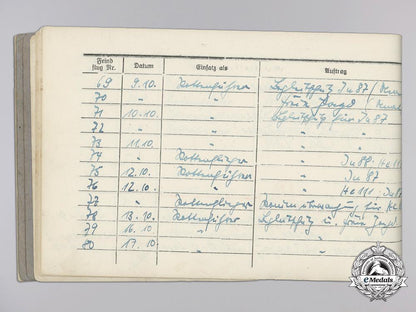 Feind flug Nr. Datum Einsatz als Auftrag
69 9.10. Rottenführer Begleitschutz Ju 87 /
70 " " freie Jagd
71 10.10. " Begleitschutz für Ju 87
72 " " "
73 11.10. " "
74 " Rottenflieger " Ju 88
75 12.10. Rottenführer " Ju 87
76 12.10. " " He 111
77 " Rottenflieger
78 13.10. Rottenführer Begleitschutz u. freie Jagd
79 16.10 "
80 17.10 "
eMedals